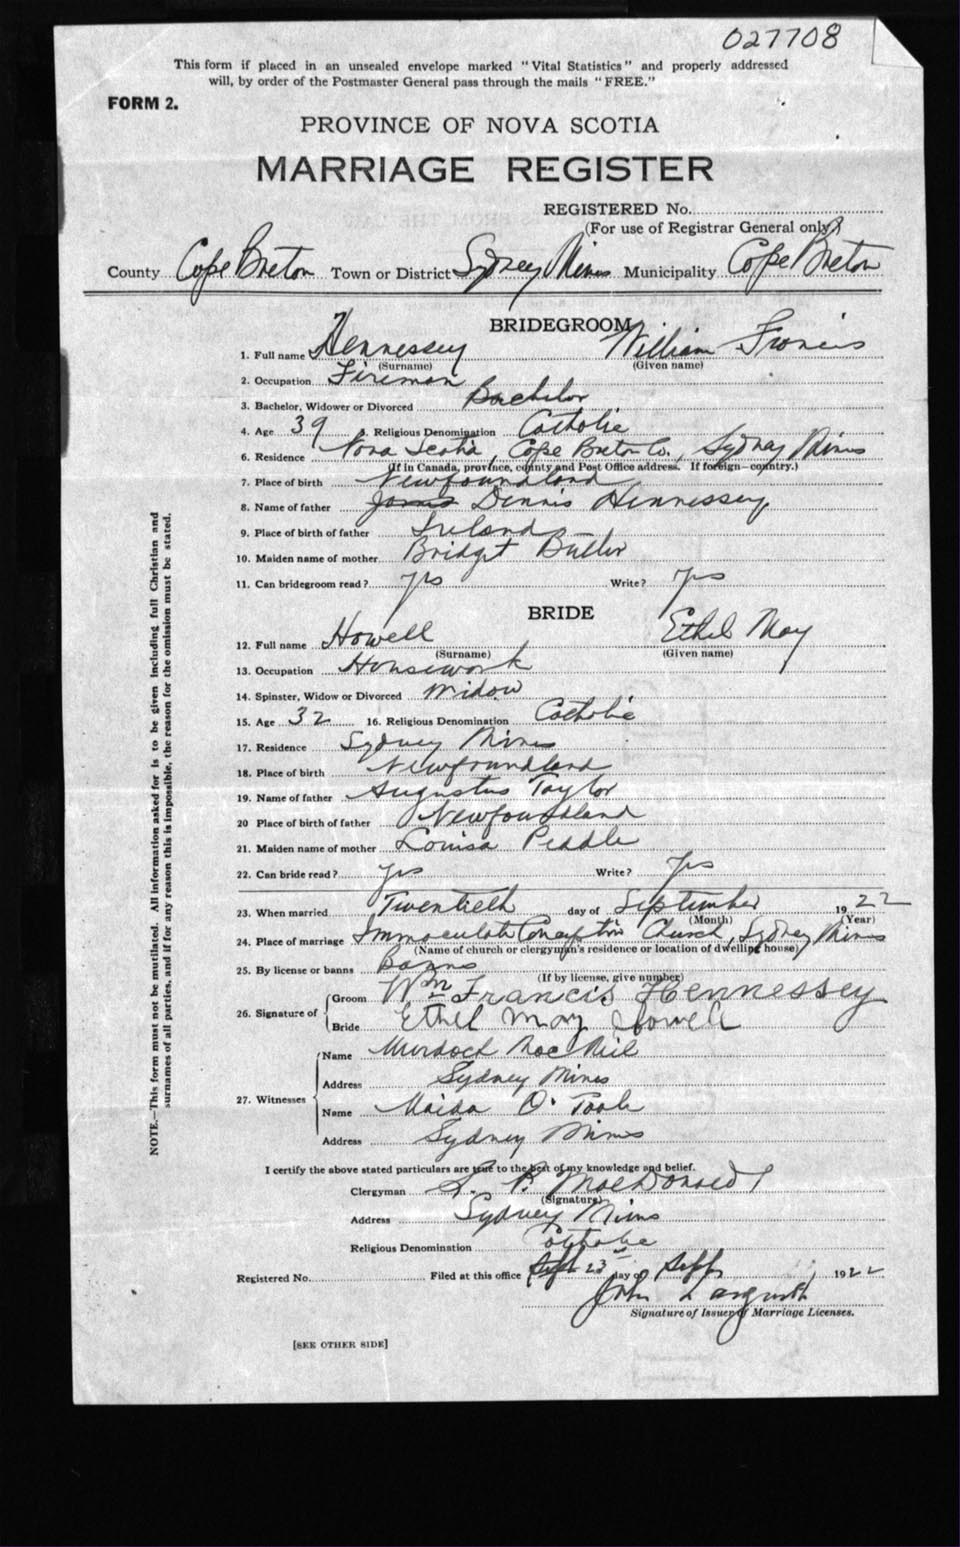 027708
This form if placed in an unsealed envelope marked "Vital Statistics" and properly addressed
will, by order of the Postmaster General pass through the mails "FREE."
FORM 2.
PROVINCE OF NOVA SCOTIA
MARRIAGE REGISTER
REGISTERED No.
(For use of Registrar General only)
County Cape Breton Town or District Sydney Mines Municipality Cape Breton
BRIDEGROOM
1. Full name Hennessey William Francis
(Surname) (Given name)
2. Occupation Fireman
3. Bachelor, Widower or Divorced Bachelor
4. Age 39 5. Religious Denomination Catholic
6. Residence Nova Scotia, Cape Breton Co., Sydney Mines
(If in Canada, province, county and Post Office address. If foreign—country.)
7. Place of birth Newfoundland
8. Name of father James Dennis Hennessey
9. Place of birth of father Ireland
10. Maiden name of mother Bridget Butler
11. Can bridegroom read? yes Write? yes
BRIDE
12. Full name Howell Ethel May
(Surname) (Given name)
13. Occupation Housework
14. Spinster, Widow or Divorced Widow
15. Age 32 16. Religious Denomination Catholic
17. Residence Sydney Mines
18. Place of birth Newfoundland
19. Name of father Augustus Taylor
20 Place of birth of father Newfoundland
21. Maiden name of mother Louisa Peddle
22. Can bride read? yes Write? yes
23. When married Twentieth day of September 1922
(Month) (Year)
24. Place of marriage Immaculate Conception Church, Sydney Mines
(Name of church or clergyman's residence or location of dwelling house)
25. By license or banns Banns
(If by license, give number)
26. Signature of
Groom Wm Francis Hennessey
Bride Ethel May Howell
27. Witnesses
Name Murdoch MacNeil
Address Sydney Mines
Name Maida O'Toole
Address Sydney Mines
I certify the above stated particulars are true to the best of my knowledge and belief.
Clergyman MacDonald
(Signature)
Address Sydney Mines
Religious Denomination Catholic
Registered No. Filed at this office Sept 23 day of Sept 1922
John
Signature of Issuer of Marriage Licenses.
[SEE OTHER SIDE]
NOTE.—This form must not be mutilated. All information asked for is to be given including full Christian and
surnames of all parties, and if for any reason this is impossible, the reason for the omission must be stated.